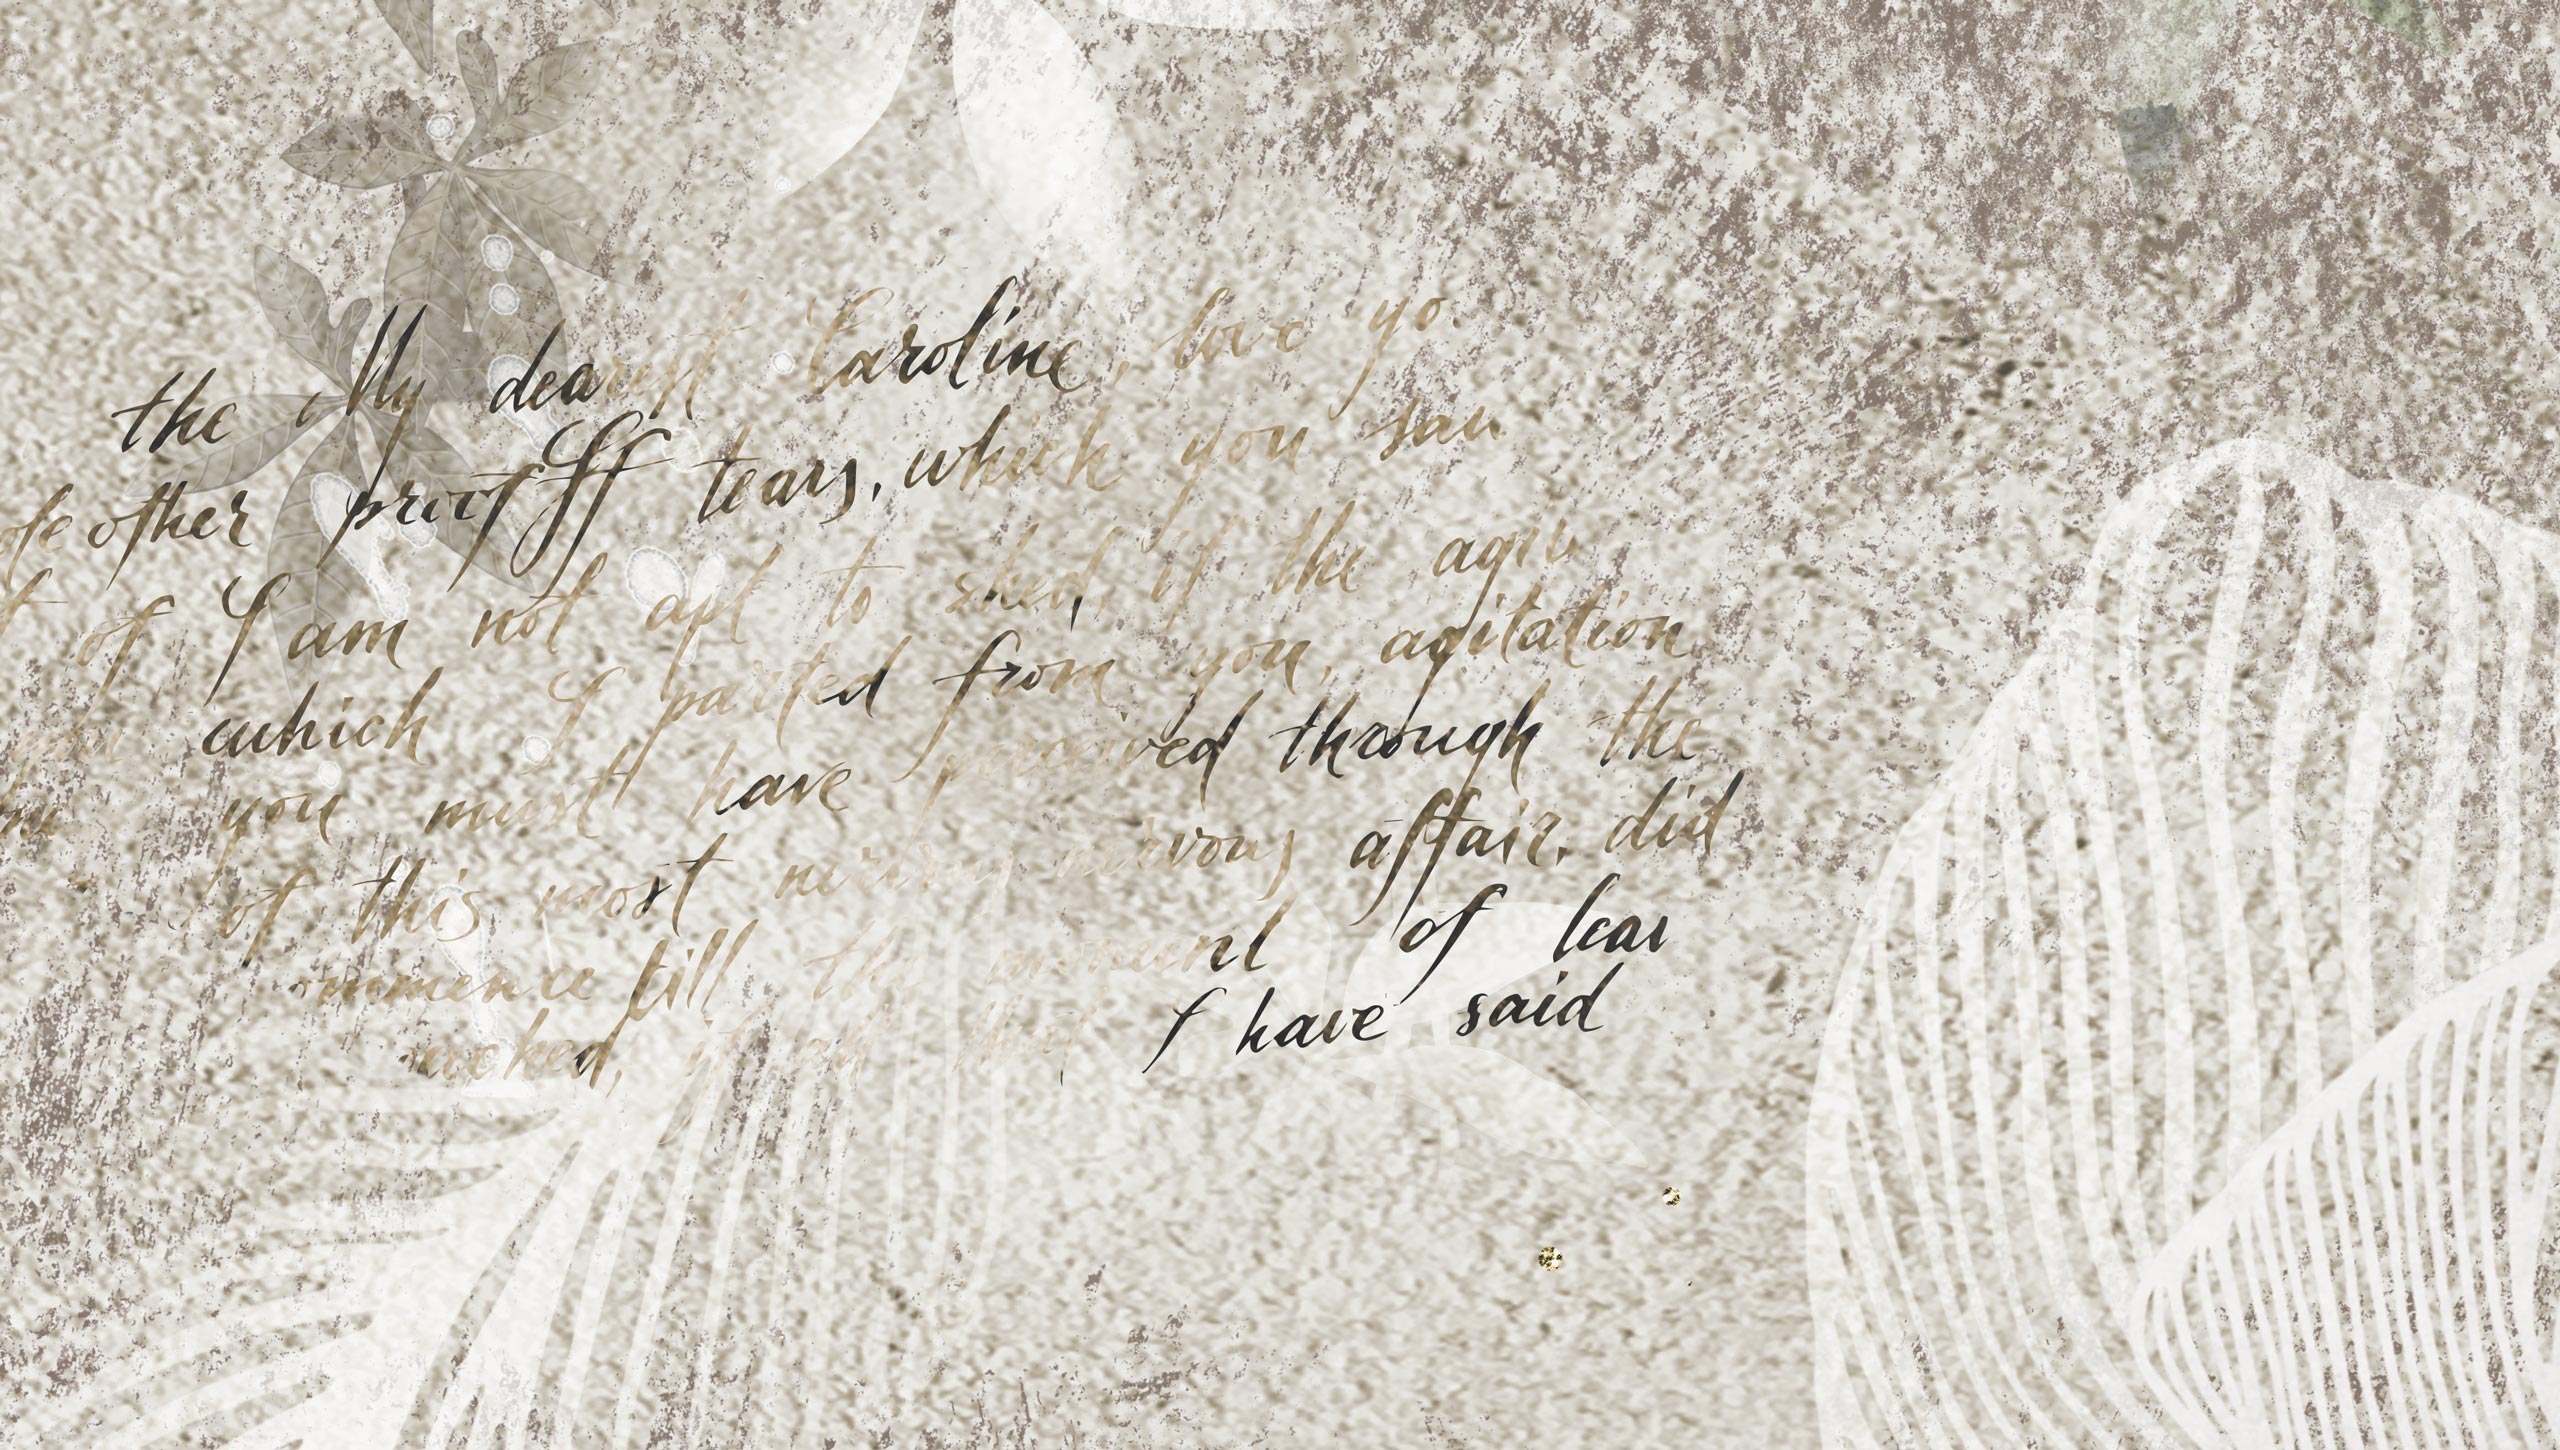 the My dearest Caroline, love yo
other proof ff tears, which you sau
of I am not apt to shed, if the agit
which I parted from you, agitation
you you must have perceived through the
of this most nervous nervous affair, did
ommence till the moment of leav
eached, if all that I have said